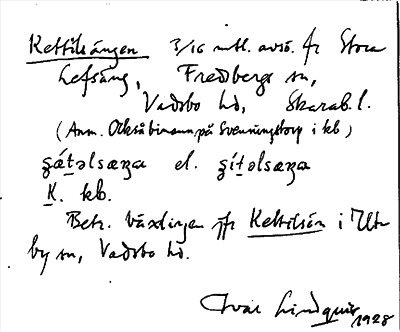 Kettilsängen 3/16 mtl. avsö. fr Stora
Lefsäng, Fredbergs sn,
Vadsbo hd, Skarab. l.
(Anm. Också binamn på Svenningstorp i kb)
el.
K. kb.
Betr. växlingen jfr Kettilsön i Ut-
by sn, Vadsbo hd.
Ivar Lindquist 1928